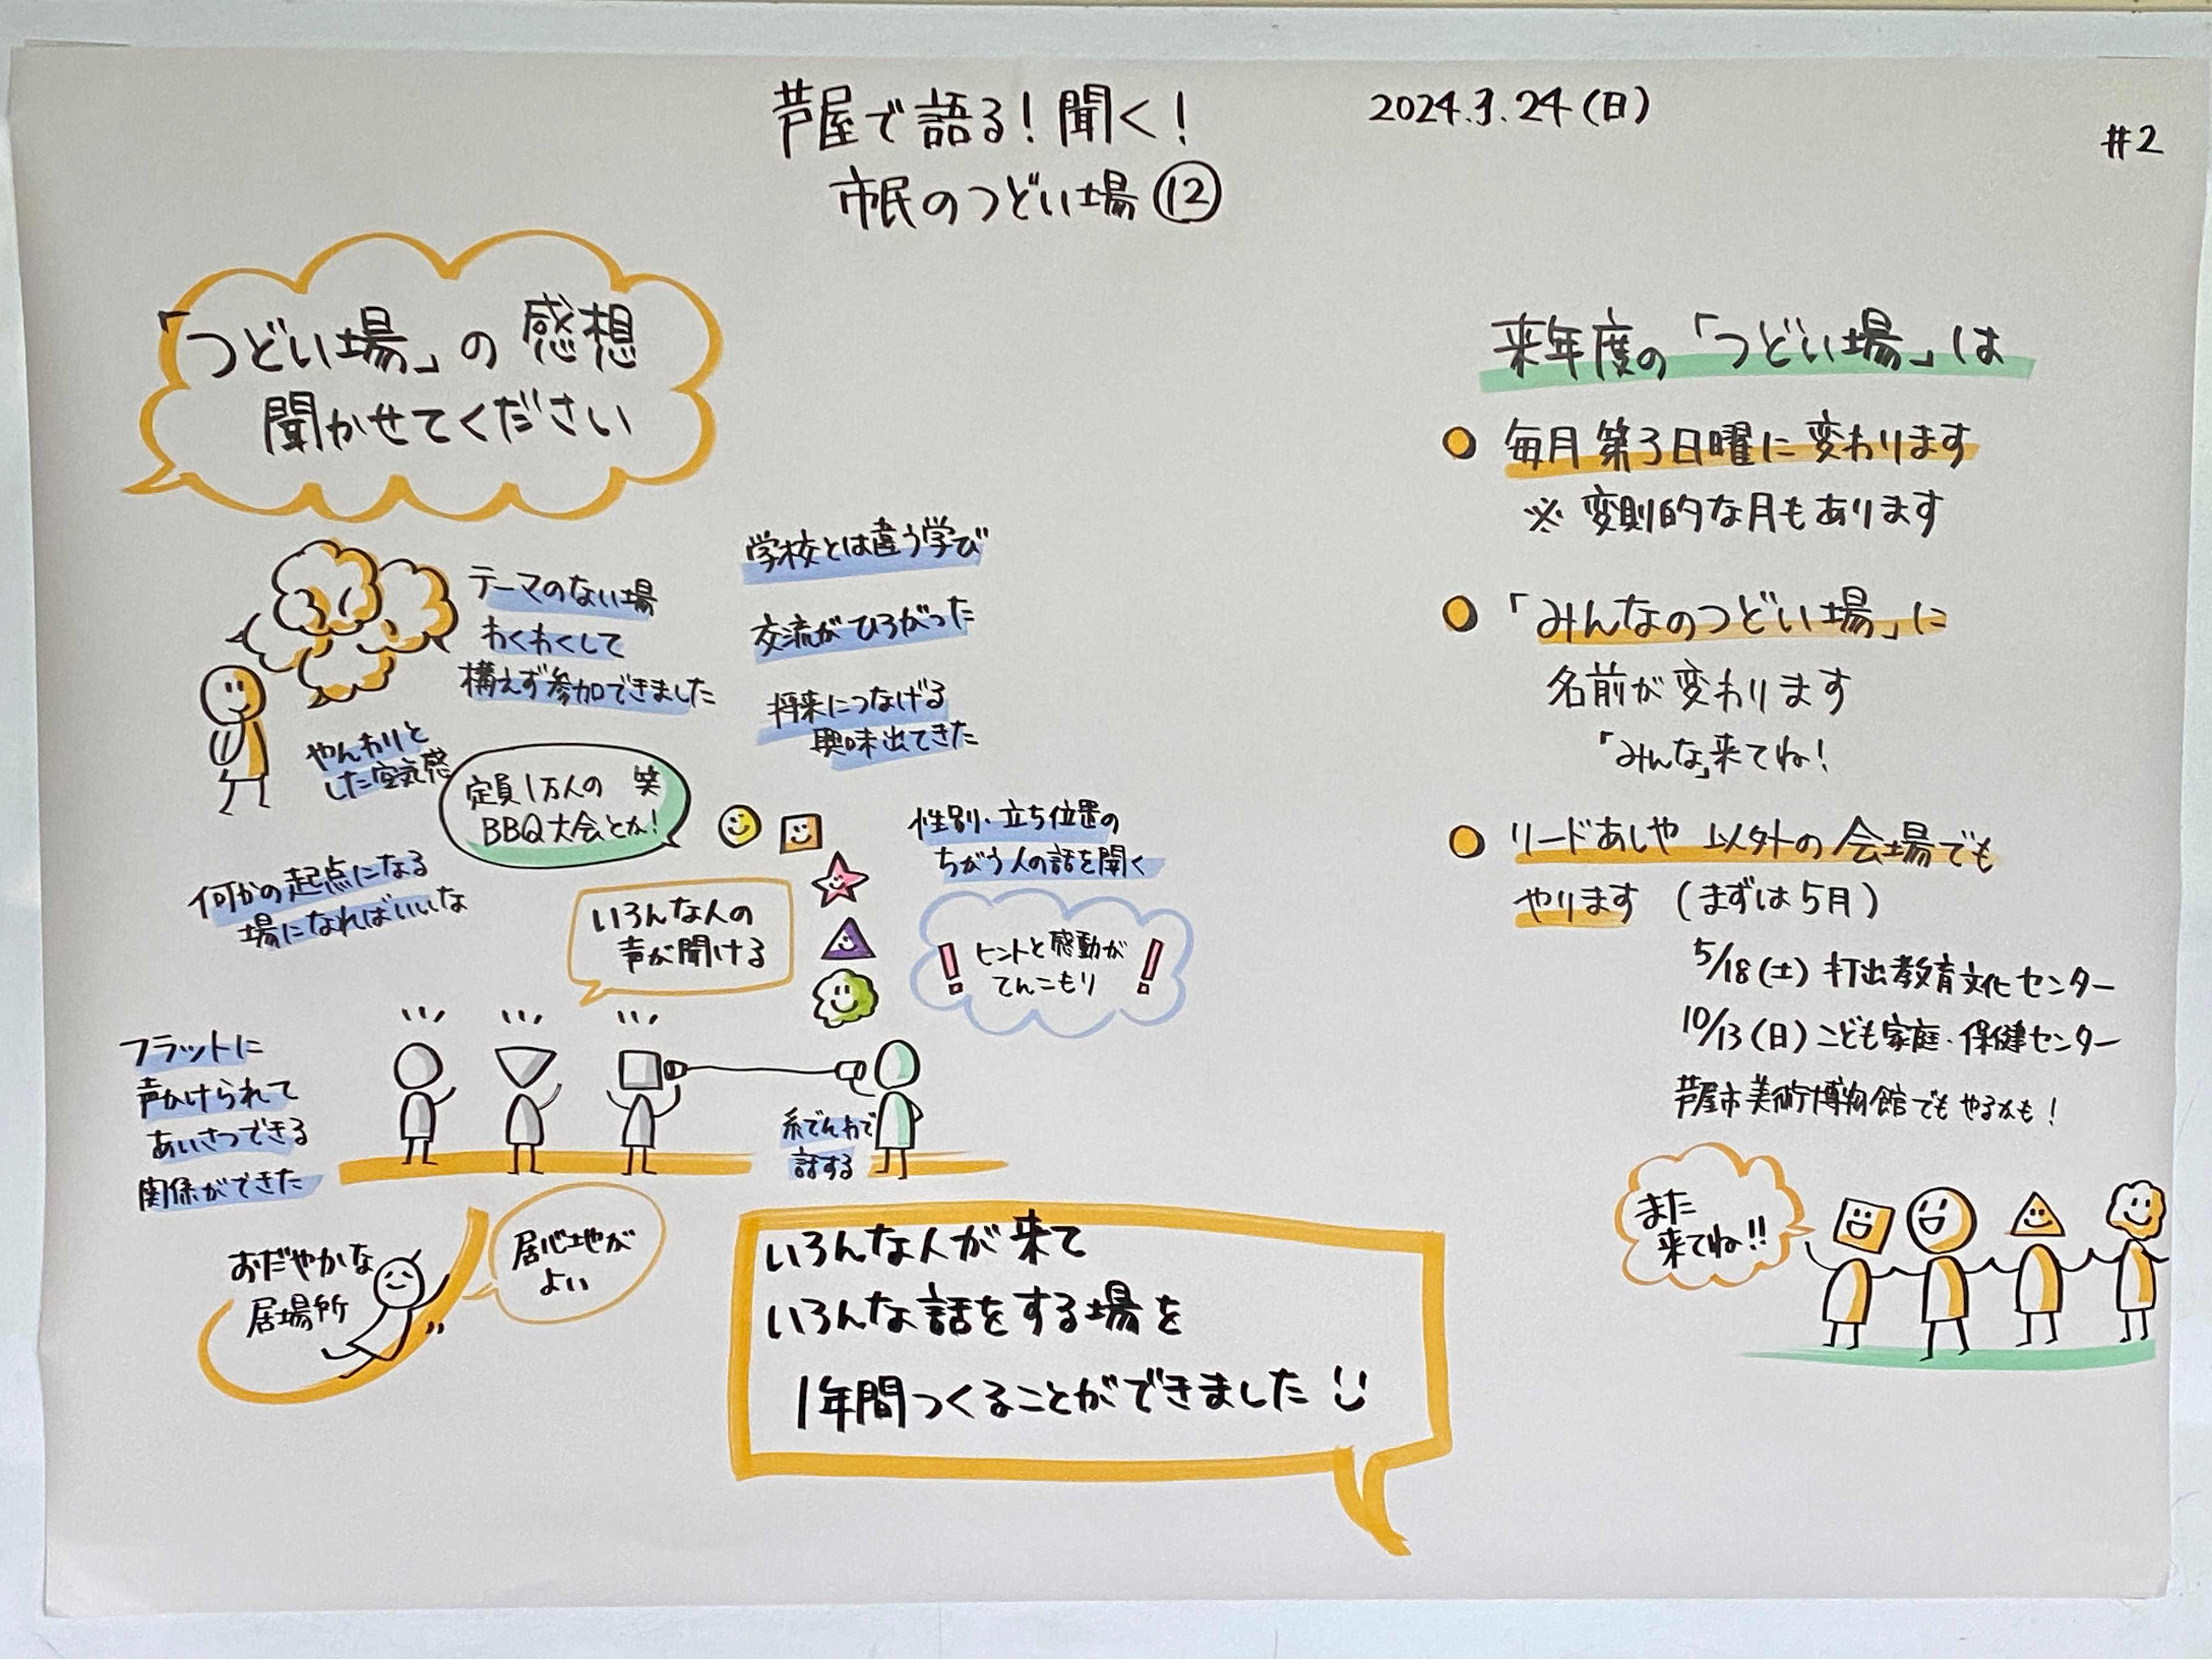 芦屋で語る！聞く！
市民のつどい場⑫
2024.3.24(日)
#2
「つどい場」の感想
聞かせてください
テーマのない場
わくわくして
構えず参加できました
やんわりと
した空気感
学校とは違う学び
交流がひろがった
将来につなげる
興味出てきた
定員1万人の 笑
BBQ大会とか！
何かの起点になる
場になればいいな
いろんな人の
声が聞ける
性別・立ち位置の
ちがう人の話を聞く
ヒントと感動が
てんこもり
フラットに
声かけられて
あいさつできる
関係ができた
糸でんわで
話する
おだやかな
居場所
居心地が
よい
いろんな人が来て
いろんな話をする場を
1年間つくることができました
来年度の「つどい場」は
毎月第3日曜に変わります
※変則的な月もあります
「みんなのつどい場」に
名前が変わります
「みんな」来てね！
リードあしや 以外の会場でも
やります (まずは5月)
5/18(土) 打出教育文化センター
10/13(日) こども家庭・保健センター
芦屋市美術博物館でもやるかも！
また
来てね!!